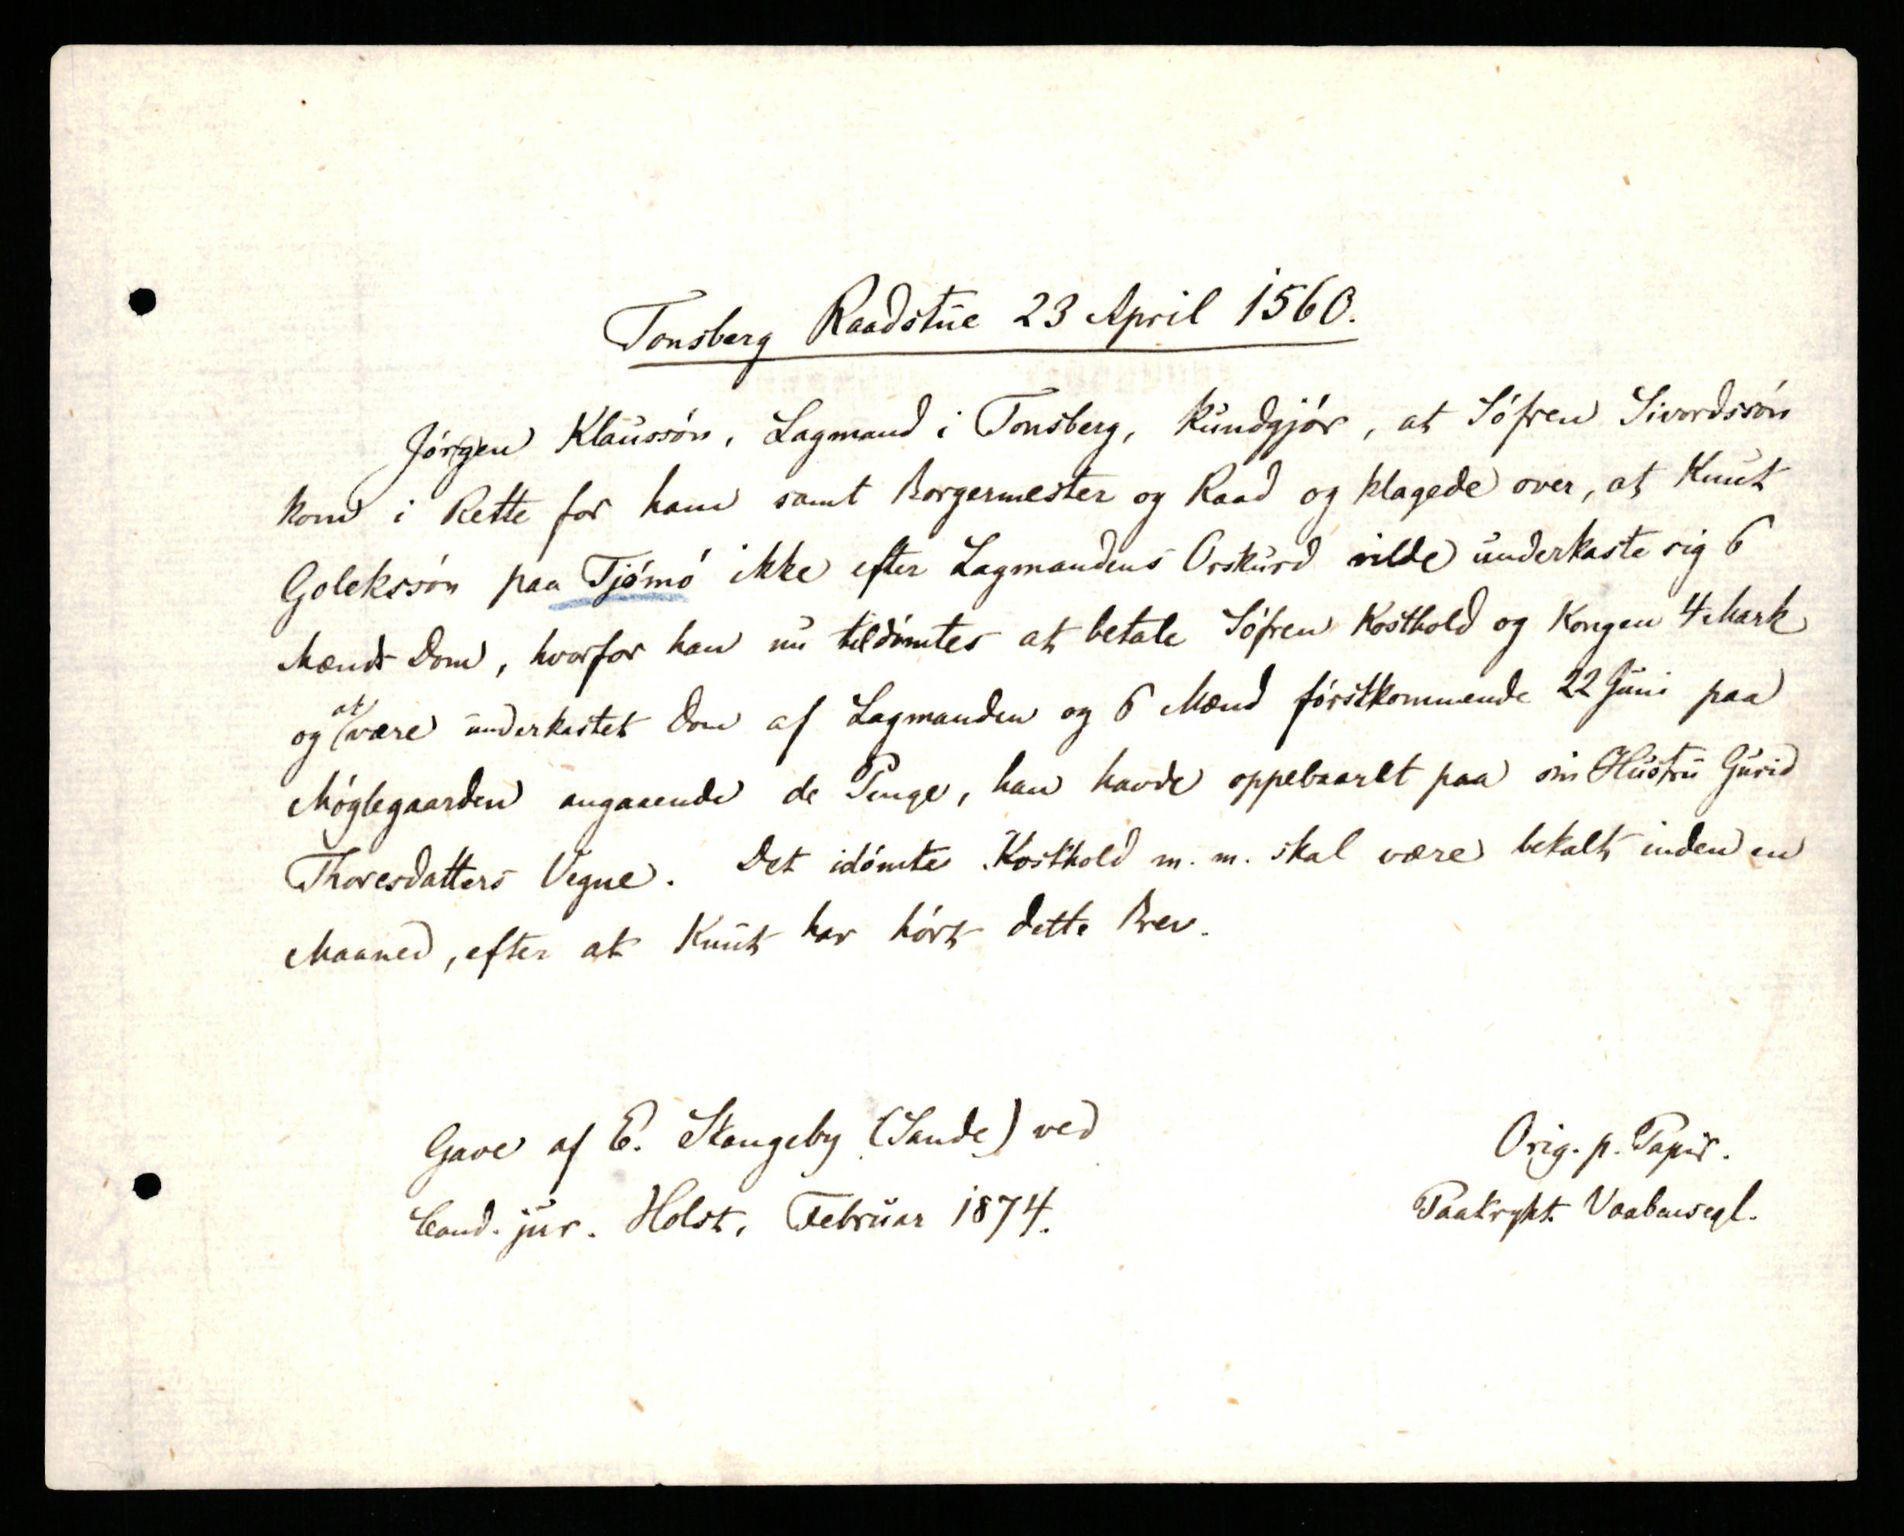 Tonsberg Raadstue 23 April 1560.
Jörgen Klaussön, Lagmand i Tonsberg, kundgjör, at Söfren Sivordssön
kom i Rette for ham samt Borgermester og Raad og klagede over, at Knut
Golekssön paa Tjömö ikke efter Lagmandens Orskurd vilde underkaste sig 6
Mænds Dom, hvorfor han nu tildömtes at betale Söfren Kosthold og Kongen 4 Mark
og at være underkastet Dom af Lagmanden og 6 Mænd förstkommende 22 Juni paa
Möglegaarden angaaende de Penge, han havde oppebaaret paa sin Hustru Gurid
Thoresdatters Vegne. Det idömte Kosthold m. m. skal være betalt inden en
Maaned, efter at Knut har hört dette Brev.
Gave af E. Skangeby (Sande) ved
Cand. jur. Holst, Februar 1874.
Orig. p. Papir.
Paatrykt Vaabensegl.